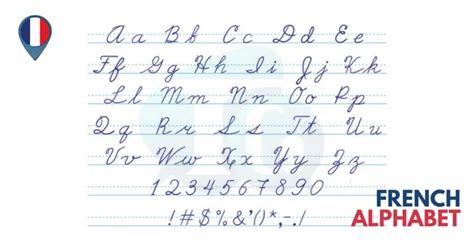 Aa Bb Cc Dd Ee
Ff Gg Hh Ii Jj Kk
Ll Mm Nn Oo Pp
Qq Rr Ss Tt Uu
Vv Ww Xx Yy Zz
1234567890
!#$%&'()*,-./
FRENCH
ALPHABET